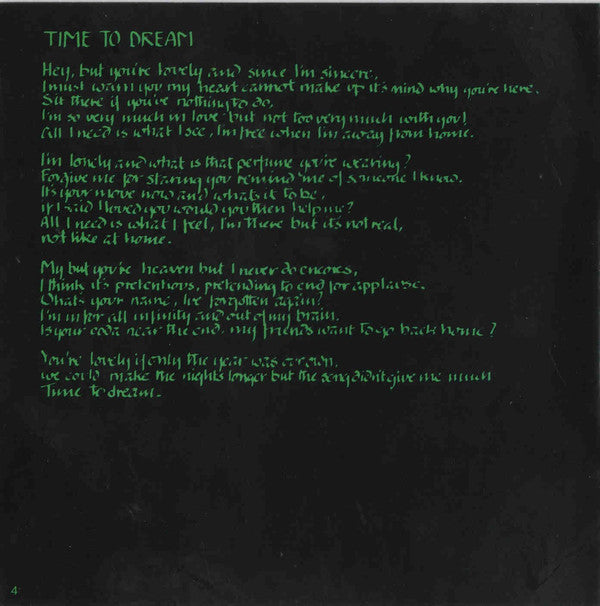 TIME TO DREAM
Hey, but you're lovely and since I'm sincere,
I must warn you my heart cannot make up it's mind why you're here.
Sit there if you've nothing to do,
I'm so very much in love but not too very much with you!
All I need is what I see, I'm free when I'm away from home.
I'm lonely and what is that perfume you're wearing?
Forgive me for staring you remind me of someone I know.
It's your move now and whats it to be,
if I said I loved you would you then help me?
All I need is what I feel, I'm there but it's not real,
not like at home.
My but you're heaven but I never do encores,
I think it's pretentious, pretending to end for applause.
Whats your name, I've forgotten again?
I'm in for all infinity and out of my brain.
Is your coda near the end, my friends want to go back home?
You're lovely if only the year was our own,
we could make the nights longer but the song didn't give me much
Time to dream.
4